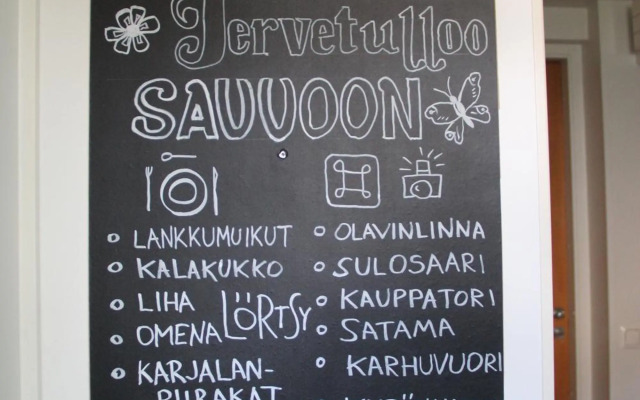 Tervetulloo
SAVVOON
LANKKUMUIKUT
KALAKUKKO
LIHA
OMENA
LÖRTSY
KARJALAN-
PIIRAKAT
OLAVINLINNA
SULOSAARI
KAUPPATORI
SATAMA
KARHUVUORI